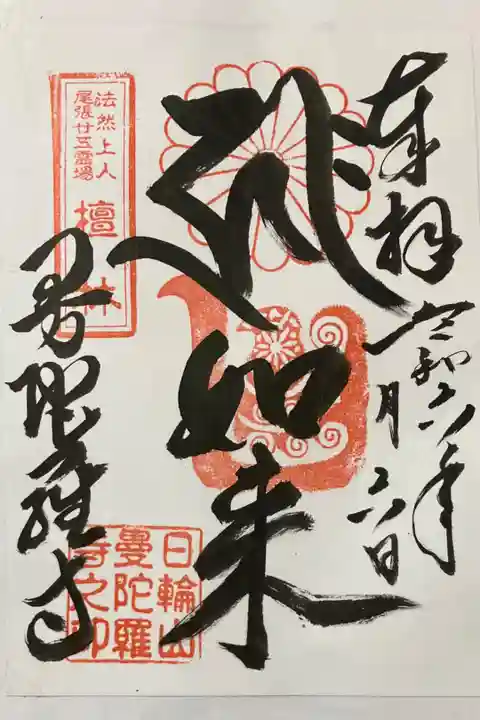 奉拝
令和六年
月
日
如来
法然上人
尾張廿五霊場
檀林
曼陀羅寺
日輪山
曼陀羅
寺之印